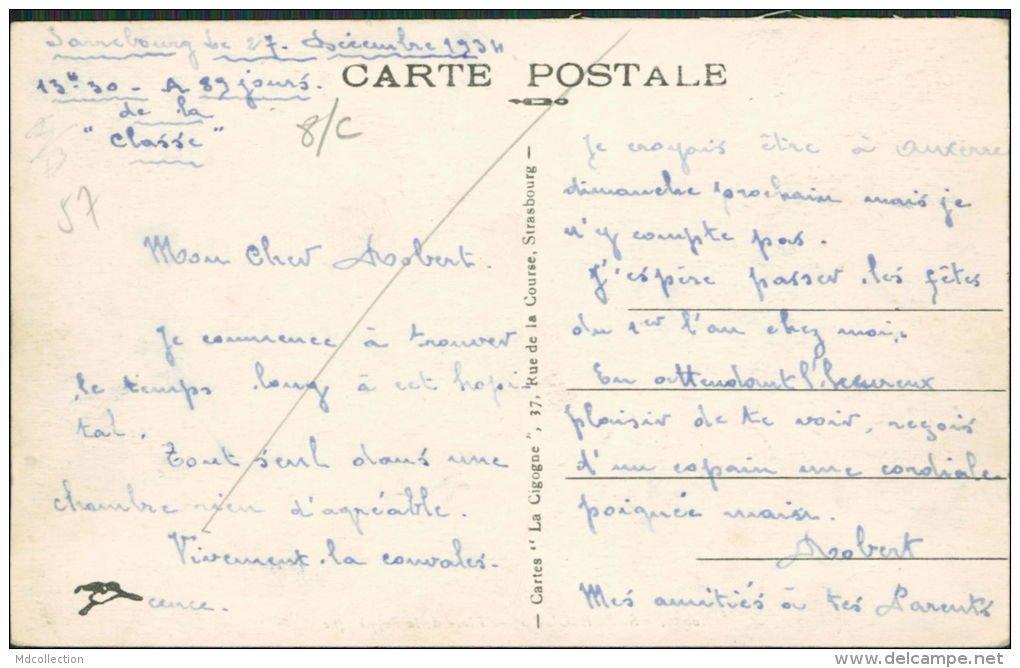 Sarrebourg le 27. Décembre 1934
13H30 - A 89 jours.
de la
"Classe"
CARTE POSTALE
8/C
57
Mon Cher Robert.
Je commence à trouver
le temps long à cet hopi
tal.
Tout seul dans une
chambre rien d'agréable.
Vivement la convales-
cence.
Cartes "La Cigogne", 37, Rue de la Course, Strasbourg
Je croyais être à Auxerre
dimanche prochain mais je
n'y compte pas.
J'espère passer les fêtes
du 1er l'an chez moi.
En attendant l'heureux
plaisir de te voir, reçois
d'un copain une cordiale
poignée main.
Robert
Mes amitiés à tes Parents
Mdcollection
www.delcampe.net